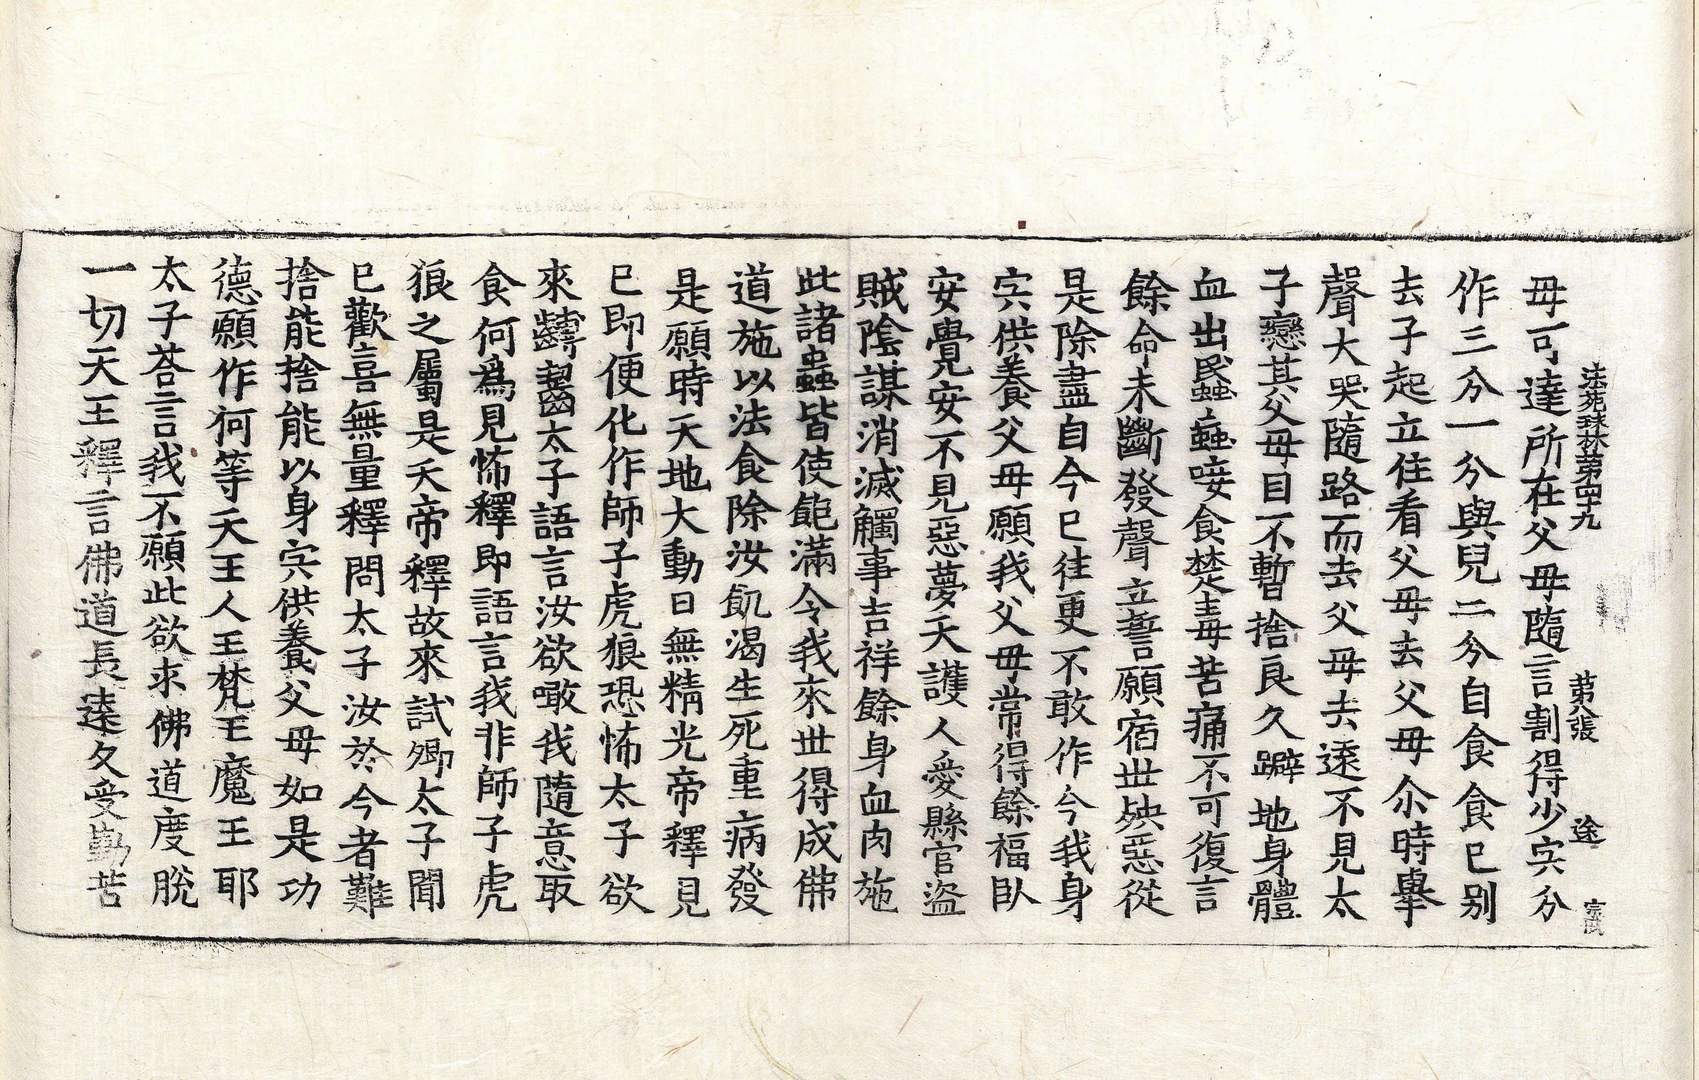 法苑珠林第四十九 第八張 途
毋可達所在父毋隨言割得少宍分
作三分一分與兒二分自食食已别
去子起立住看父毋去父毋尒時舉
聲大哭隨路而去父毋去遠不見太
子戀其父毋目不暫捨良久躃地身體
血出蚊蟲唼食楚毒苦痛不可復言
餘命未斷發聲立誓願宿世殃惡從
是除盡自今已往更不敢作今我身
宍供養父毋願我父毋常得餘福臥
安覺安不見惡夢天護人愛縣官盜
賊陰謀消滅觸事吉祥餘身血肉施
此諸蟲皆使飽滿令我來世得成佛
道施以法食除汝飢渴生死重病發
是願時天地大動日無精光帝釋見
已即便化作師子虎狼恐怖太子欲
來齧太子語言汝欲噉我隨意取
食何為見怖釋即語言我非師子虎
狼之屬是天帝釋故來試卿太子聞
已歡喜無量釋問太子汝於今者難
捨能捨能以身宍供養父毋如是功
德願作何等天王人王梵王魔王耶
太子荅言我不願此欲求佛道度脫
一切天王釋言佛道長遠久受勤苦